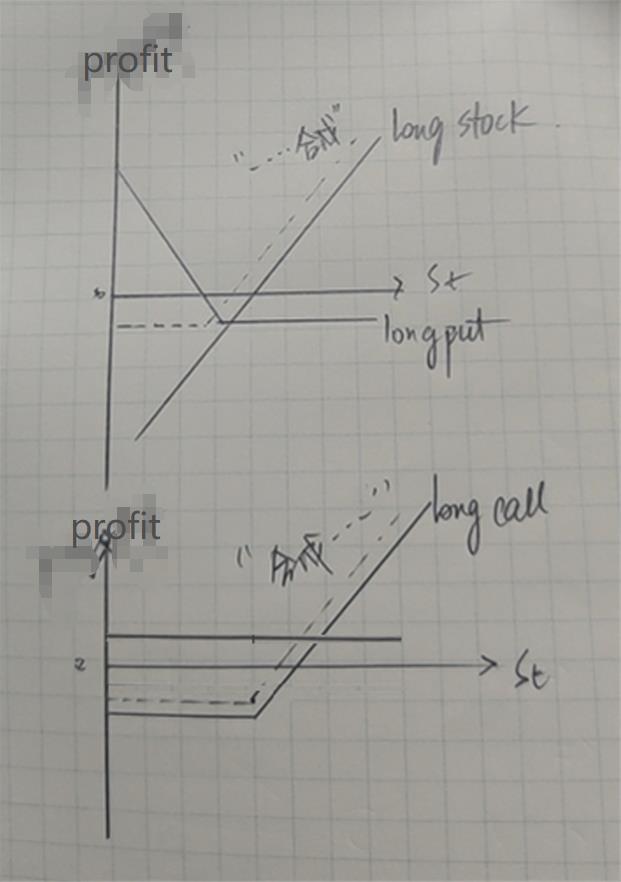 profit
"---合成"
long stock
St
long put
profit
long call
"合成---"
St